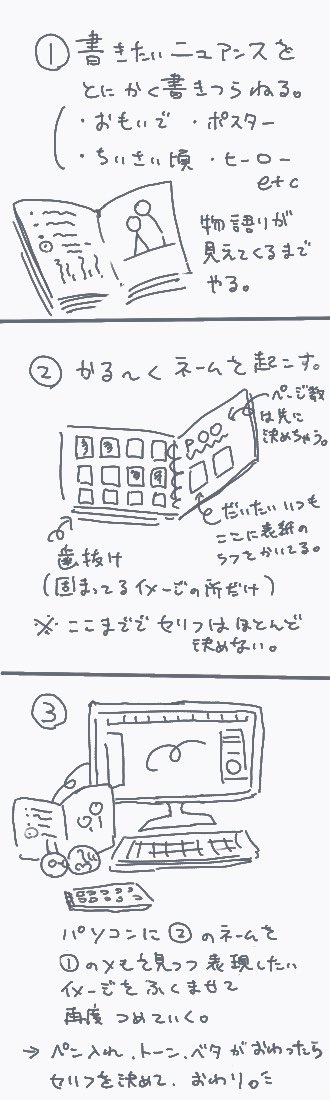 ① 書きたいニュアンスを
とにかく書きつらねる。
・おもいで ・ポスター
・ちいさい頃 ・ヒーロー
etc
物語りが
見えてくるまで
やる。
② かる〜くネームを起こす。
ページ数
は先に
決めちゃう。
だいたいいつも
ここに表紙の
ラフをかいてる。
歯抜け
(固まってるイメージの所だけ)
※ ここまででセリフはほとんど
決めない。
③
パソコンに②のネームを
①のメモを見つつ表現したい
イメージをふくませて
再度つめていく。
→ ペン入れ、トーン、ベタがおわったら
セリフを決めて、おわり。